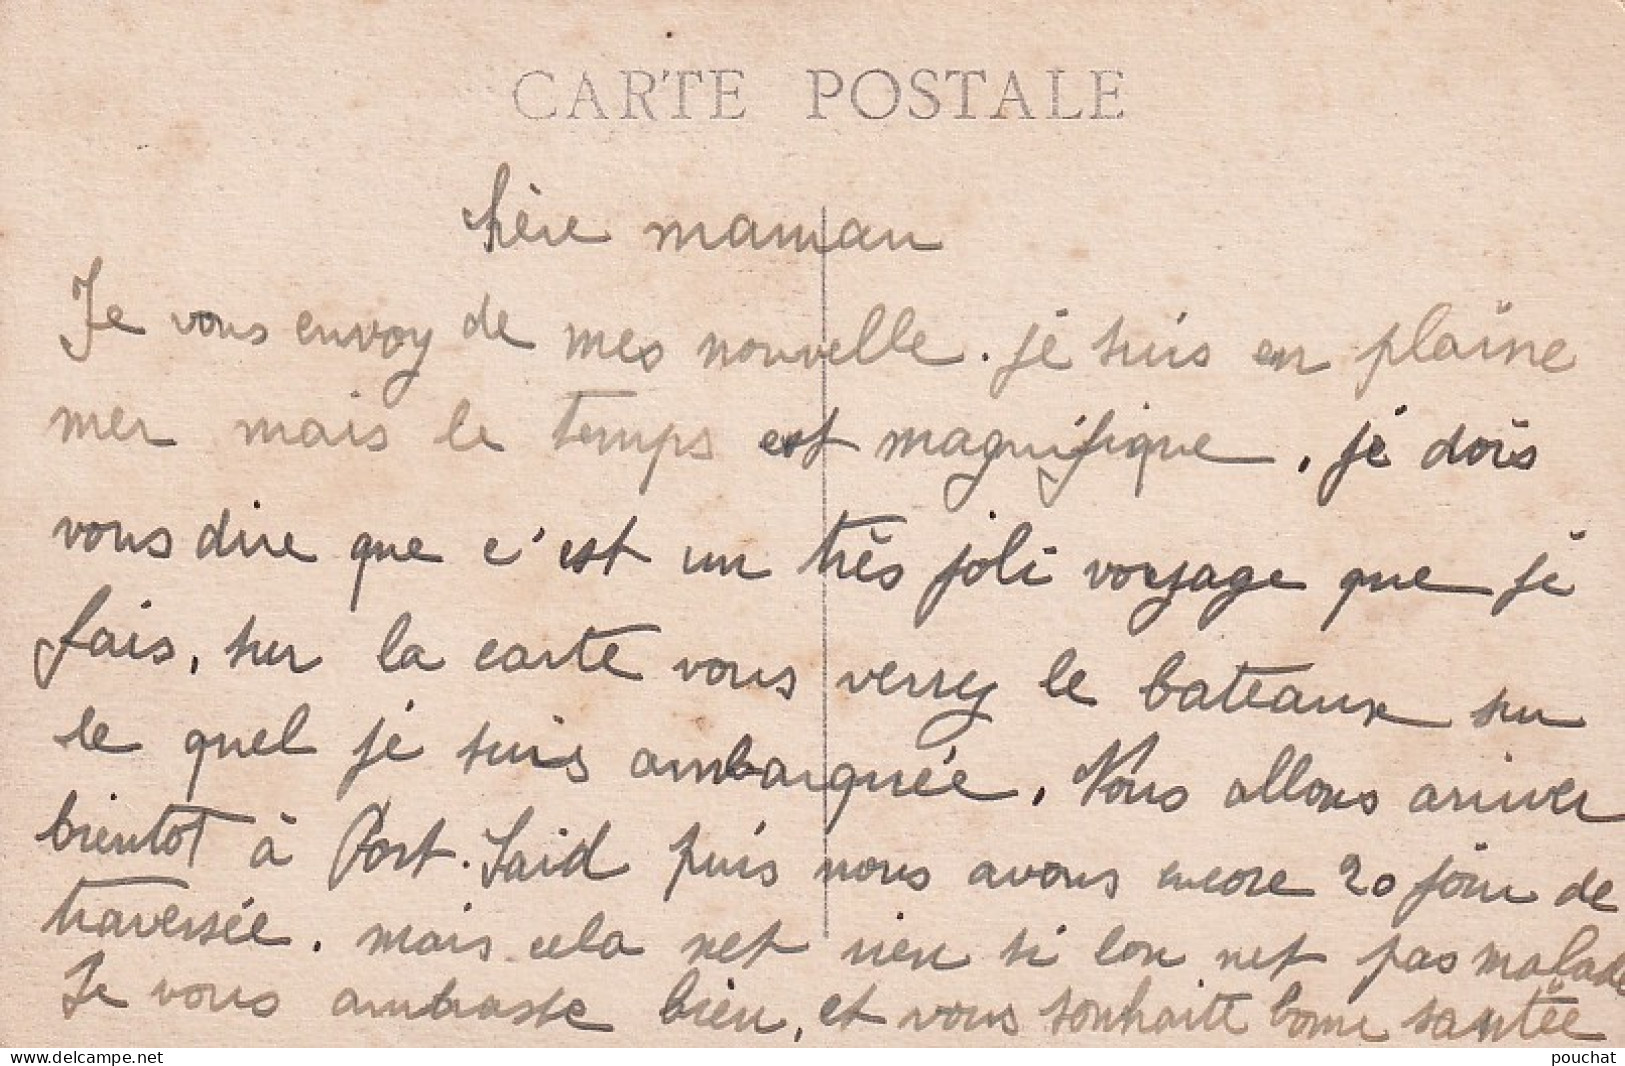 CARTE POSTALE
chère maman
Je vous envoy de mes nouvelle. je suis en plaine
mer mais le temps est magnifique, je dois
vous dire que c'est un très joli voyage que je
fais, sur la carte vous verrez le bateaux sur
le quel je suis ambarquée, Nous allons ariver
bientot à Port. Said puis nous avons encore 20 jour de
traversée. mais cela net rien si lon net pas malade
Je vous ambrasse bien, et vous souhaite bonne santée
pouchat